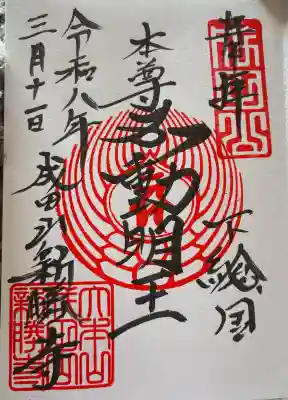 奉拝
下總国
本尊不動明王
令和八年
三月十一日
成田山新勝寺
大本山
成田山
新勝寺